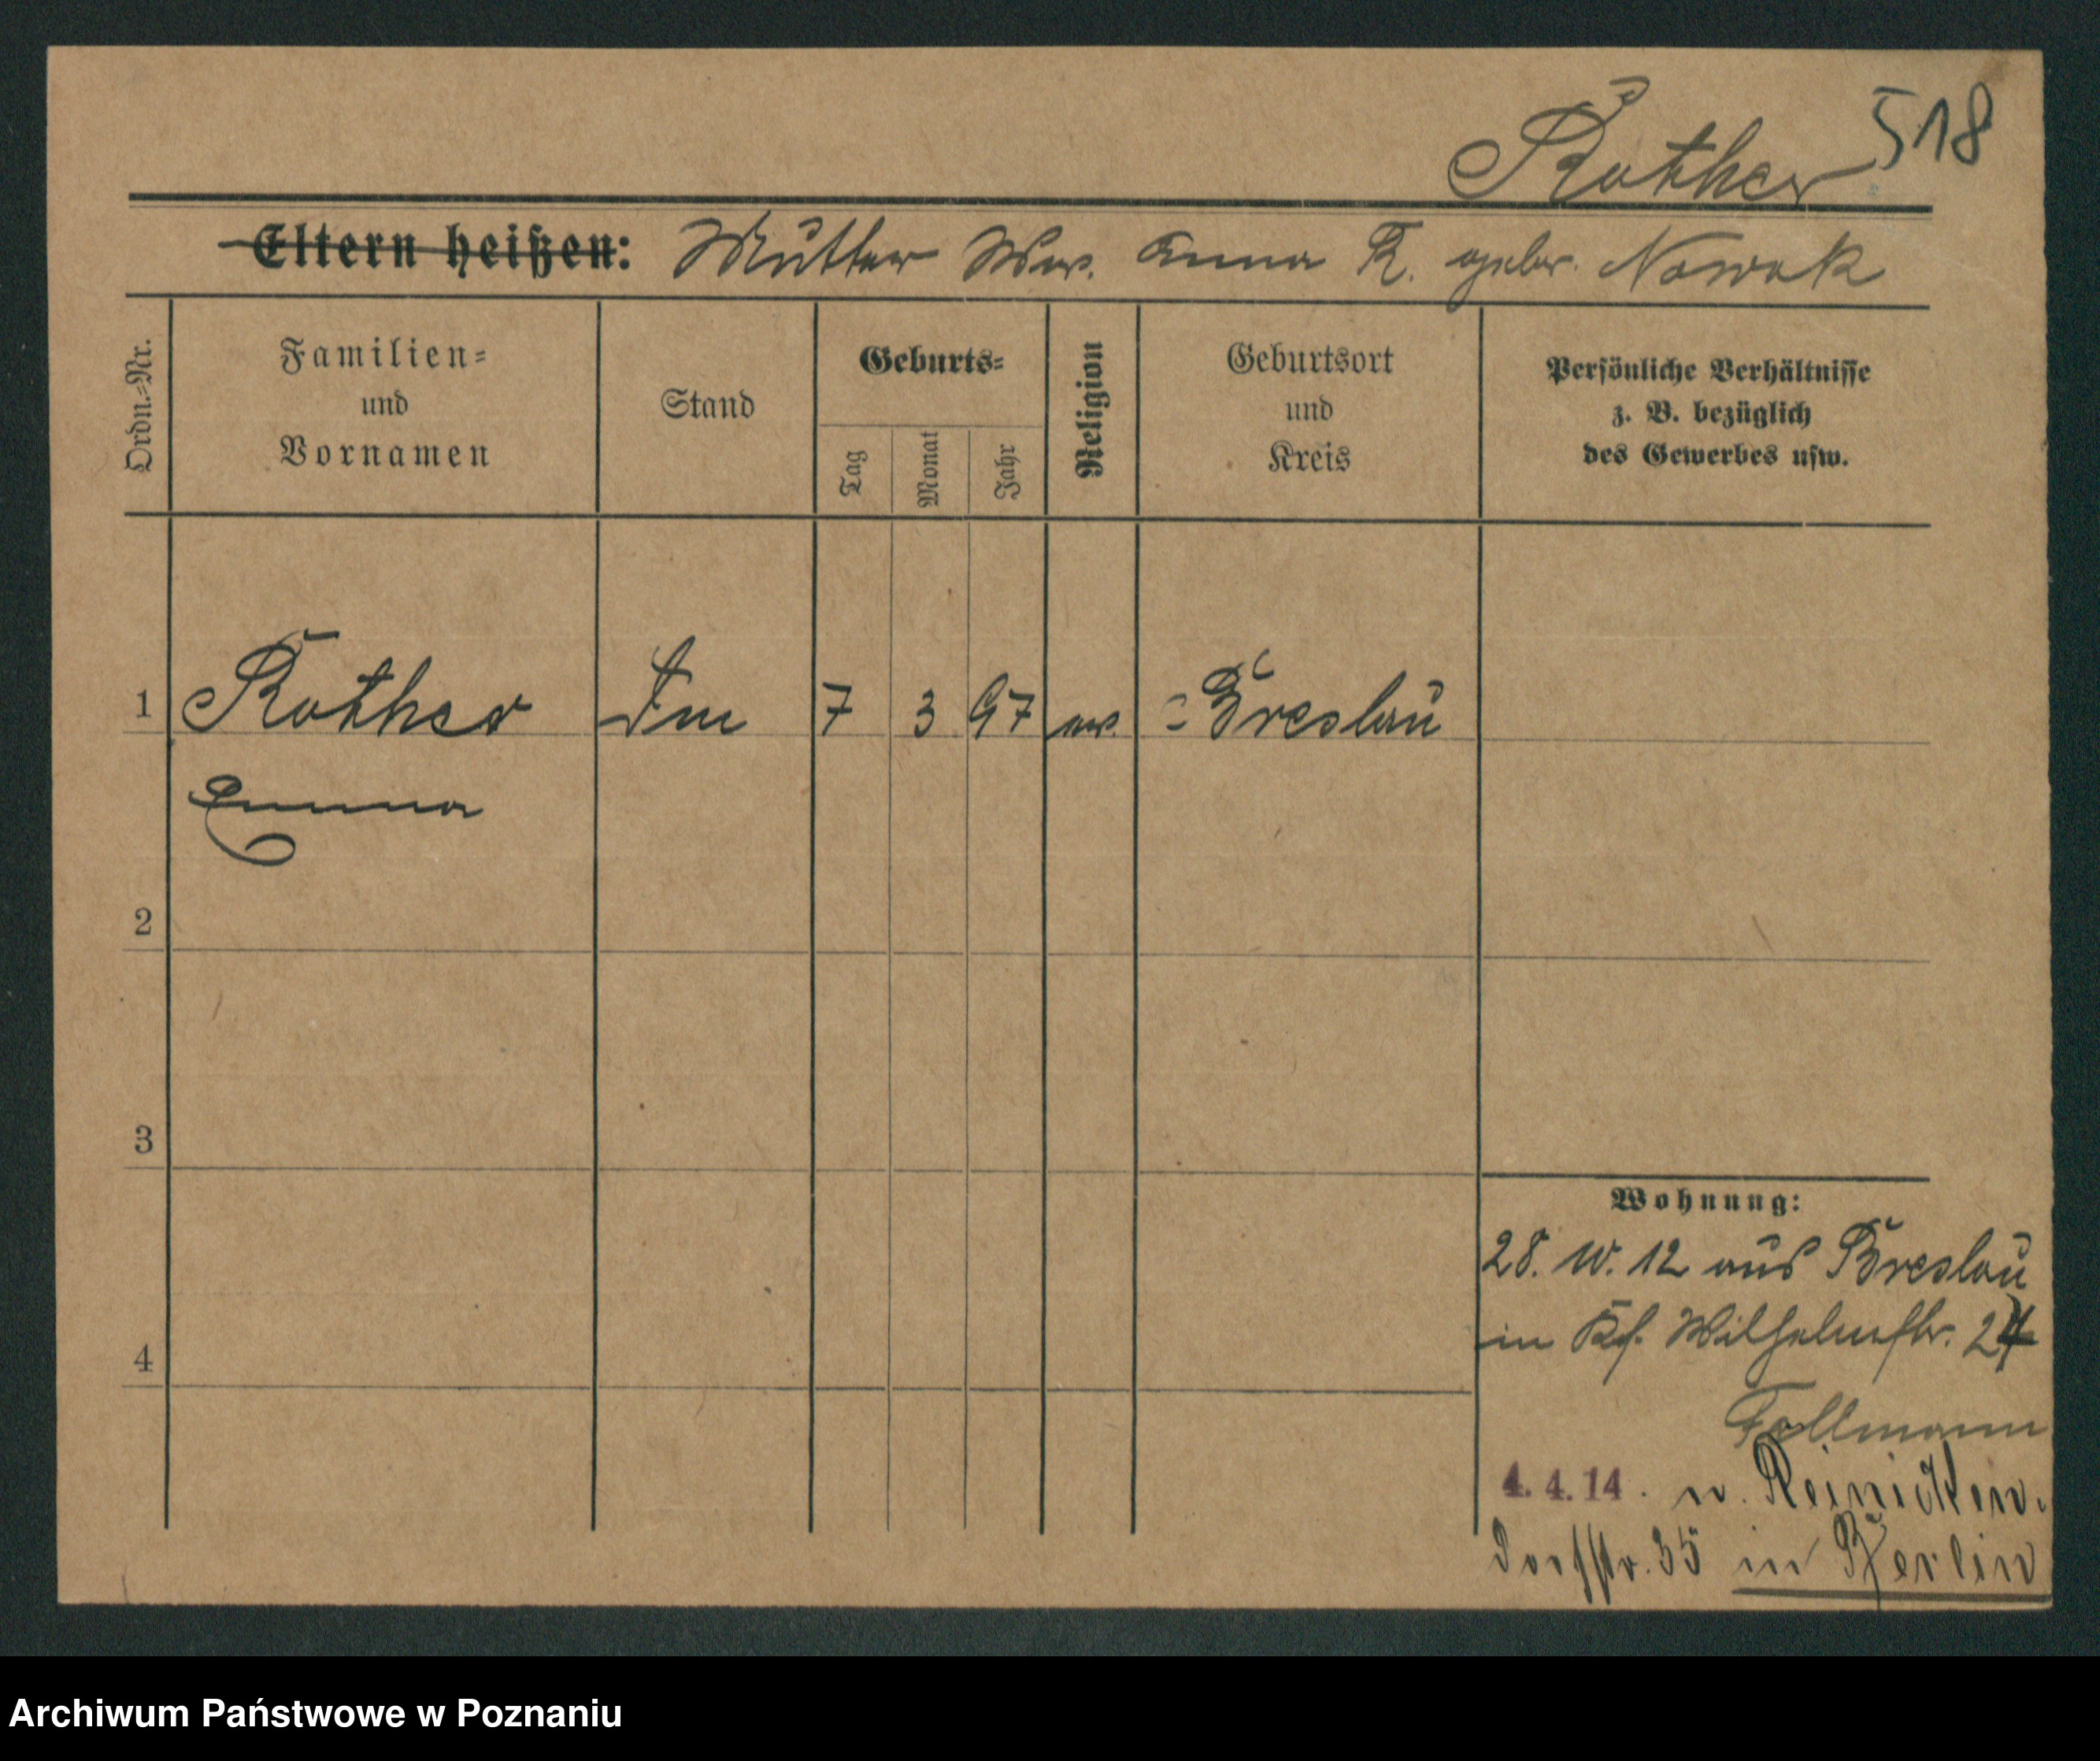 Rother 518
Eltern heißen: Mutter Ww. Anna R. gebr. Nowak
Ordn.=Nr.
Familien=
und
Vornamen
Stand
Geburts=
Tag
Monat
Jahr
Religion
Geburtsort
und
Kreis
Persönliche Verhältnisse
z. B. bezüglich
des Gewerbes usw.
1 Rother 7 3 97 ev. Breslau
Emma
2
3
4
Wohnung:
28. 10. 12 aus Breslau
in Wilhelmstr.
4.4.14. n. Reinicken-
dorfstr. 35 in Berlin
Archiwum Państwowe w Poznaniu